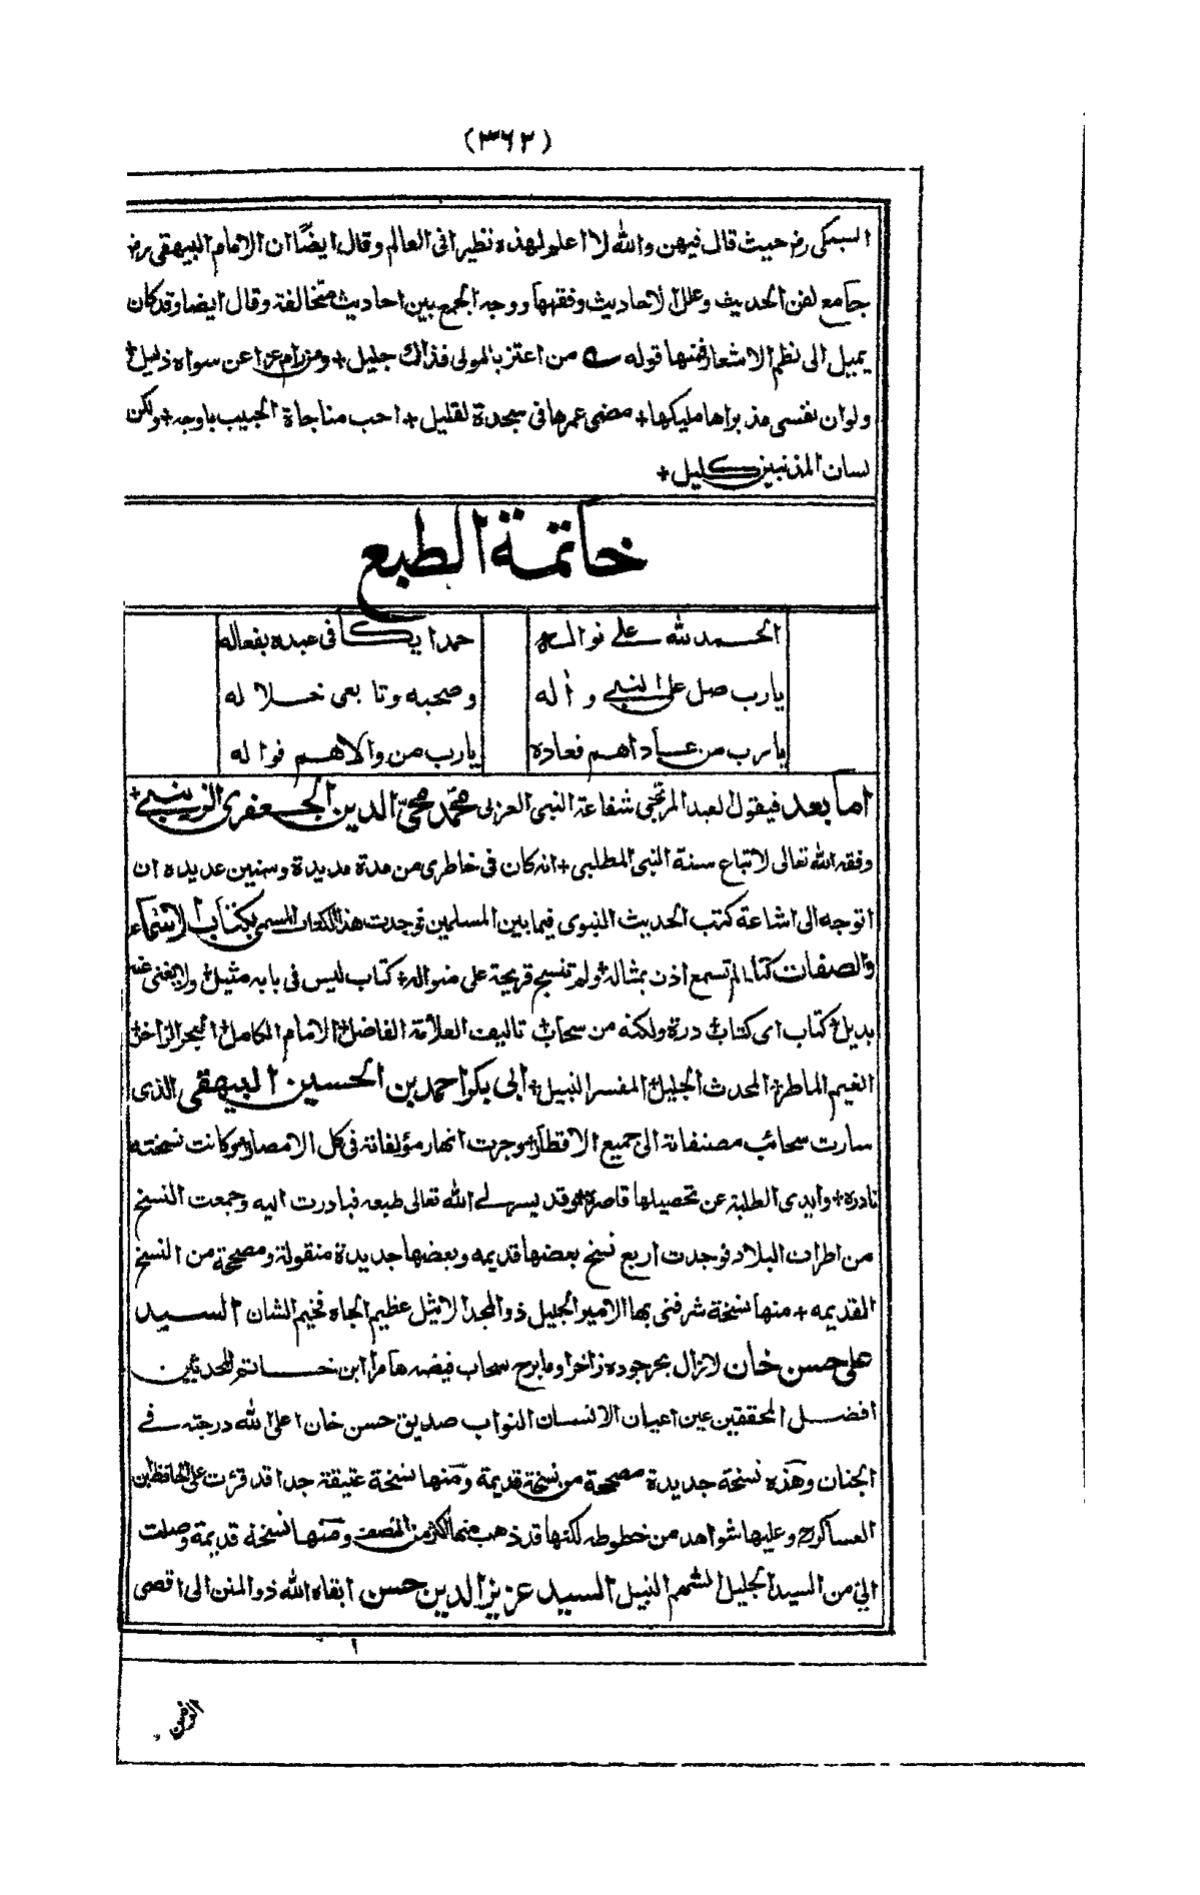 (٣٦٢)
السبكى رض حيث قال فيهن والله لا اعلم لهذه نظيرا فى العالم وقال ايضًا ان الامام البيهقى رض
جامع لفن الحديث وعلل الاحاديث وفقهها ووجه الجمع بين احاديث متخالفة وقال ايضا وقد كان
يميل الى نظم الاشعار فمنها قوله من اعتز بالمولى فذاك جليل + ومن رام عزا عن سواه ذليل +
ولو ان نفسى مذ براها مليكها + مضى عمرها فى سجدة لقليل + احب مناجاة الحبيب باوجه + ولكن
لسان المذنبين كليل +
خاتمة الطبع
الحمد لله على نواله حمدا يكافى عبده بفعاله
يارب صل على النبى وأله وصحبه وتابعى خلاله
يارب من عاداهم فعاده يارب من والاهم فواله
اما بعد فيقول العبد المرتجى شفاعة النبى العربى محمد محىّ الدين الجعفرى الزينبى +
وفقه الله تعالى لاتباع سنة النبى المطلبى + انه كان فى خاطرى من مدة مديدة وسنين عديده ان
اتوجه الى اشاعة كتب الحديث النبوى فيما بين المسلمين فوجدت هذا الكتاب المسمى بكتاب الاسماء
والصفات كتابا لم تسمع اذن بمثاله + ولم تنسج قريحة على منواله + كتاب ليس فى بابه مثيل + ولا يغنى عنه
بديل + كتاب اى كتاب + درة ولكنه من سحاب + تاليف العلامة الفاضل + الامام الكامل + البحر الزاخر +
الغيم الماطر + المحدث الجليل + المفسر النبيل + ابى بكر احمد بن الحسين البيهقى الذى
سارت سحائب مصنفاته الى جميع الاقطار + وجرت انهار مؤلفاته فى كل الامصار + وكانت نسخته
نادرة + وايدى الطلبة عن تحصيلها قاصرة + وقد يسر لى الله تعالى طبعه فبادرت اليه وجمعت النسخ
من اطراف البلاد فوجدت اربع نسخ بعضها قديمه وبعضها جديدة منقولة ومصححة من النسخ
القديمه + منها نسخة شرفنى بها الامير الجليل ذو المجد الاثيل عظيم الجاه فخيم الشان السيد
على حسن خان لازال بحر جوده زاخرا وما برح سحاب فيضه هامرا ابن خاتم المحدثين
افضل المحققين عين اعيان الانسان النواب صديق حسن خان اعلى الله درجته فى
الجنان وهذه نسخة جديدة مصححة من نسخة قديمة ومنها نسخة عتيقة جدا قد قرئت على الحافظ ابن
العساكر رح وعليها شواهد من خطوطه لكنها قد ذهب منها اكثر من النصف ومنها نسخة قديمة وصلت
الىّ من السيد الجليل الشهم النبيل السيد عزيز الدين حسن ابقاه الله ذو المنن الى اقصى